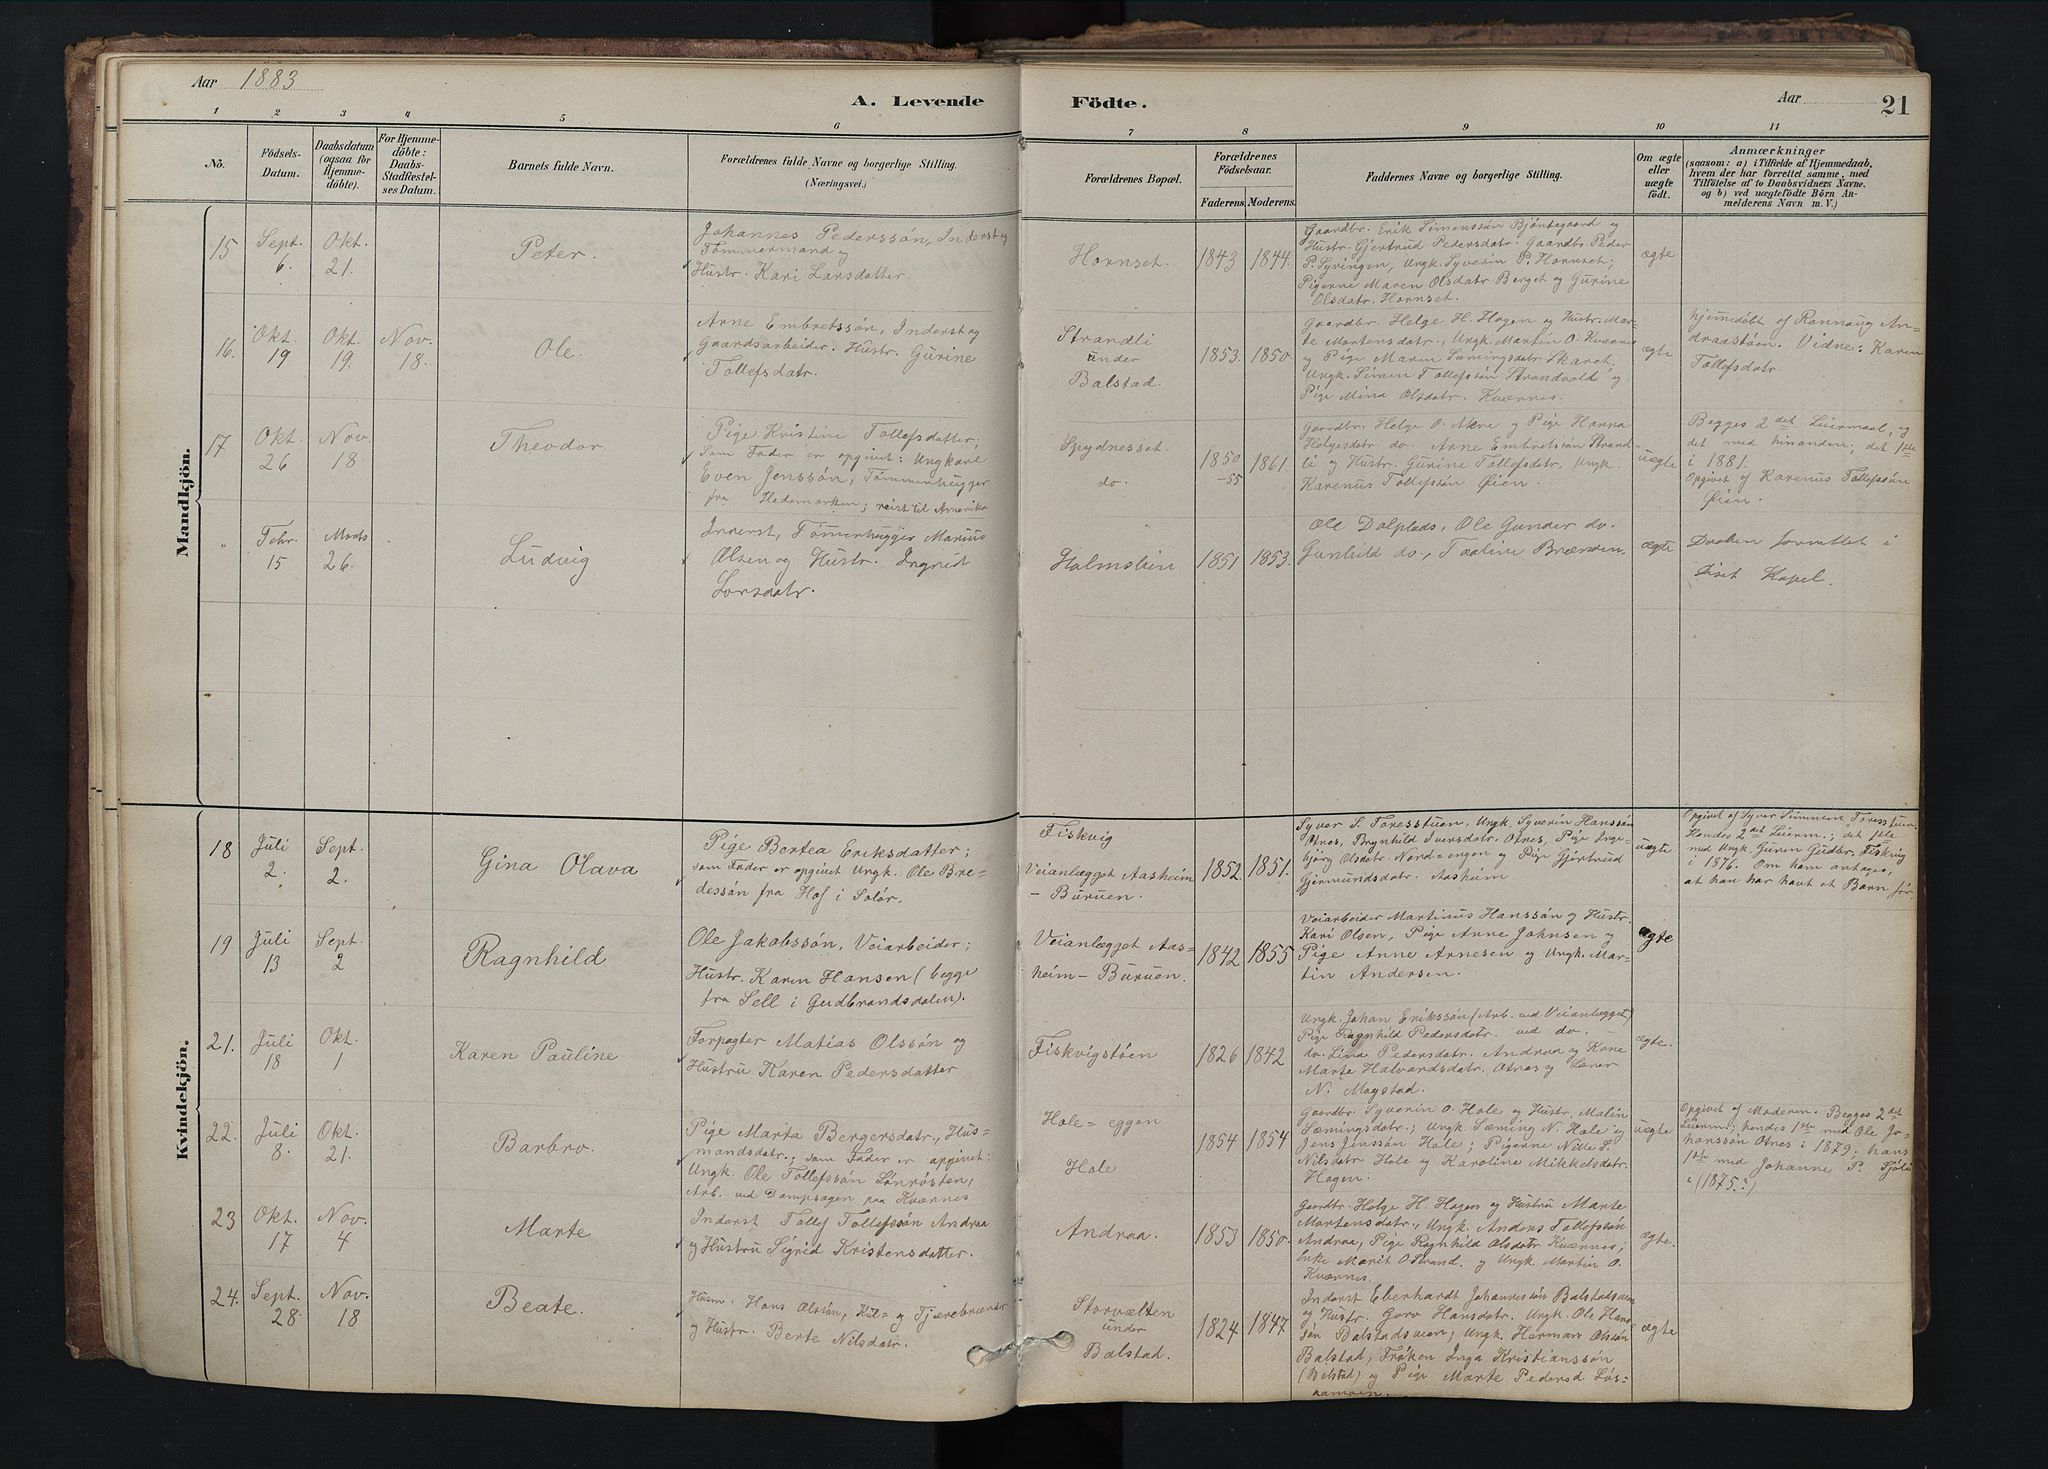 Aar 1883
A. Levende
Födte.
Aar
21
1 2 3 4 5 6 7 8 9 10 11
No.
Födsels-
Datum.
Daabsdatum
(ogsaa for
Hjemme-
döbte).
For Hjemme-
döbte:
Daabs-
Stadfæstel-
ses Datum.
Barnets fulde Navn.
Forældrenes fulde Navne og borgerlige Stilling.
(Næringsvei.)
Forældrenes Bopæl.
Forældrenes
Födselsaar.
Faderens. Moderens.
Faddernes Navne og borgerlige Stilling.
Om ægte
eller
uægte
födt.
Anmærkninger
(saasom: a) i Tilfælde af Hjemmedaab,
hvem der har forrettet samme, med
Tilföielse af to Daabsvidners Navne,
og b) ved uægtefödte Börn An-
melderens Navn m. V.)
Mandkjön.
15
Sept.
6.
Okt.
21.
Peter.
Johannes Pederssön, Inderst og
Tömmermand og
Hustr. Kari Larsdatter.
Hornset.
1843
1844
Gaardbr. Erik Simenssön Bjöntegaard og
Hustr. Gjertrud Pedersdatr. Gaardbr. Peder
P. Syringen, Ungk. Syverin P. Hornset;
Pigerne Maren Olsdatr Berget og Gurine
Olsdatr. Hornset.
ægte
16.
Okt.
19
Okt.
19.
Nov.
18.
Ole
Arne Embretssön, Inderst og
Gaardsarbeider. Hustr. Gurine
Tollefsdatr.
Strandli
under
Balstad.
1853.
1850.
Gaardbr. Helge H. Hagen og Hustr. Mar-
te Martensdatr., Ungk. Martin O. Kværnes
og Pige Maren Sæmingsdatr. Skaret,
Ungk. Simen Tollefssön Strandvold og
Pige Mina Olsdatr. Kværnes.
ægte
hjemmedöbt af Rannaug An-
draastöen. Vidne: Karen
Tollefsdatr.
17
Okt.
26
Nov.
18.
Theodor.
Pige Kristine Tollefsdatter;
som Fader er opgivet: Ungkarl
Even Jenssön, Tömmerhugger
fra Hedemarken; reist til Amerika
Spydnesset.
do.
1850
-55
1861.
Gaardbr. Helge O. Akre og Pige Hanna
Helgesdatr. do. Arne Embretssön Strand-
li og Hustr. Gurine Tollefsdatr., Ungk.
Karenus Tollefssön Öien.
uægte
Begges 2det Leiermaal, og
det med hinanden; det 1ste
i 1881.
Opgivet af Karenus Tollefssön
Öien.
"
Febr.
15
Marts
26.
Ludvig
Inderst, Tömmerhugger Marius
Olsen og Hustr. Ingrid
Larsdatr.
Holmslien
1851
1853.
Ole Dalplads, Ole Gunder do.
Gunhild do., Taaline Brænden.
ægte
Daaben forrettet i
Diset Kapel.
Kvindekjön.
18
Juli
2.
Sept.
2.
Gina Olava
Pige Bertea Eriksdatter;
som Fader er opgivet Ungk. Ole Bre-
dessön fra Hof i Solör.
Fiskvig
Veianlægget Aasheim
- Buruen.
1852
1851.
Syver S. Foresstuen, Ungk. Syverin Hanssön
Otnes, Brynhild Iversdatr. Otnes, Pige Inge-
björg Olsdatr. Nord-engen og Pige Gjertrud
Gjermundsdatr. Aasheim
uægte
Opgivet af Syver Simensen Foresstuen.
Hendes 2det Leierm.; det 1ste
med Ungk. Guren Gudbr. Fiskvig
i 1876. Om ham antages,
at han har havt et Barn för
19
Juli
13
Sept.
2
Ragnhild
Ole Jakobssön, Veiarbeider;
Hustr. Karen Hansen (begge
fra Sell i Gudbrandsdalen).
Veianlægget Aas-
heim- Buruen.
1842
1855
Veiarbeider Martinus Hanssön og Hustr.
Kari Olsen, Pige Anne Johnsen og
Pige Anne Arnesen og Ungk. Mar-
tin Andersen.
ægte
21.
Juli
18
Okt.
1
Karen Pauline
Forpagter Matias Olssön og
Hustru Karen Pedersdatter
Fiskvigstöen
1826
1842
Ungk. Johan Erikssön (Arb. ved Veianlægget)
Pige Ragnhild Pedersdatr. ved do. -
do. Lina Pedersdatr. Andraa og Kone
Marte Halvardsdatr. Otnes og Lærer
N. Magstad.
ægte.
22.
Juli
8.
Okt.
21.
Barbro.
Pige Marta Bergersdatr., Hus-
mandsdatr.; som Fader er opgivet:
Ungk. Ole Tollefssön Lönrösten,
Arb. ved Dampsagen paa Kværnes
Hole=eggen
Hole
1854
1854
Gaardbr. Syverin O. Hole og Hustr. Malin
Sæmingsdatr.; Ungk. Sæming N. Hole og
Jens Jenssön Hole; Pigerne Nille S.
Nilsdatr. Hole og Karoline Mikkelsdatr.
Hagen.
uægte
Opgivet af Moderen. Begges 2det
Leierm.; hendes 1ste med Ole Jo-
hanssön Otnes i 1879; hans
1ste med Johanne P. Fjöli
i (1875?)
23
Okt.
17
Nov.
4
Marte
Inderst Tollef Tollefssön Andraa
og Hustru Sigrid Kristensdatter.
Andraa.
1853
1850.
Gaardbr. Helge H. Hagen og Hustru Marte
Martensdatr., Ungk. Anders Tollefssön
Andraa, Pige Ragnhild Olsdatr Kværnes;
Enke Marit O Strand. og Ungk. Martin O.
Kværnes.
ægte.
24.
Sept.
28.
Nov.
18
Beate.
Husm. Hans Olssön, Kul- og Tjærebrænder
og Hustr. Berte Nilsdatr.
Storvælten
under
Balstad.
1824
1847
Inderst Eberhardt Johannessön Balstadsveen
og Hustr. Guro Hansdatr. Ungk. Ole Hans-
sön Balstadsveen; Ungk. Herman Olssön
Balstad, Fröken Inga Kristianssön
(Balstad) og Pige Marte Pedersd. Lös-
namoen.
ægte